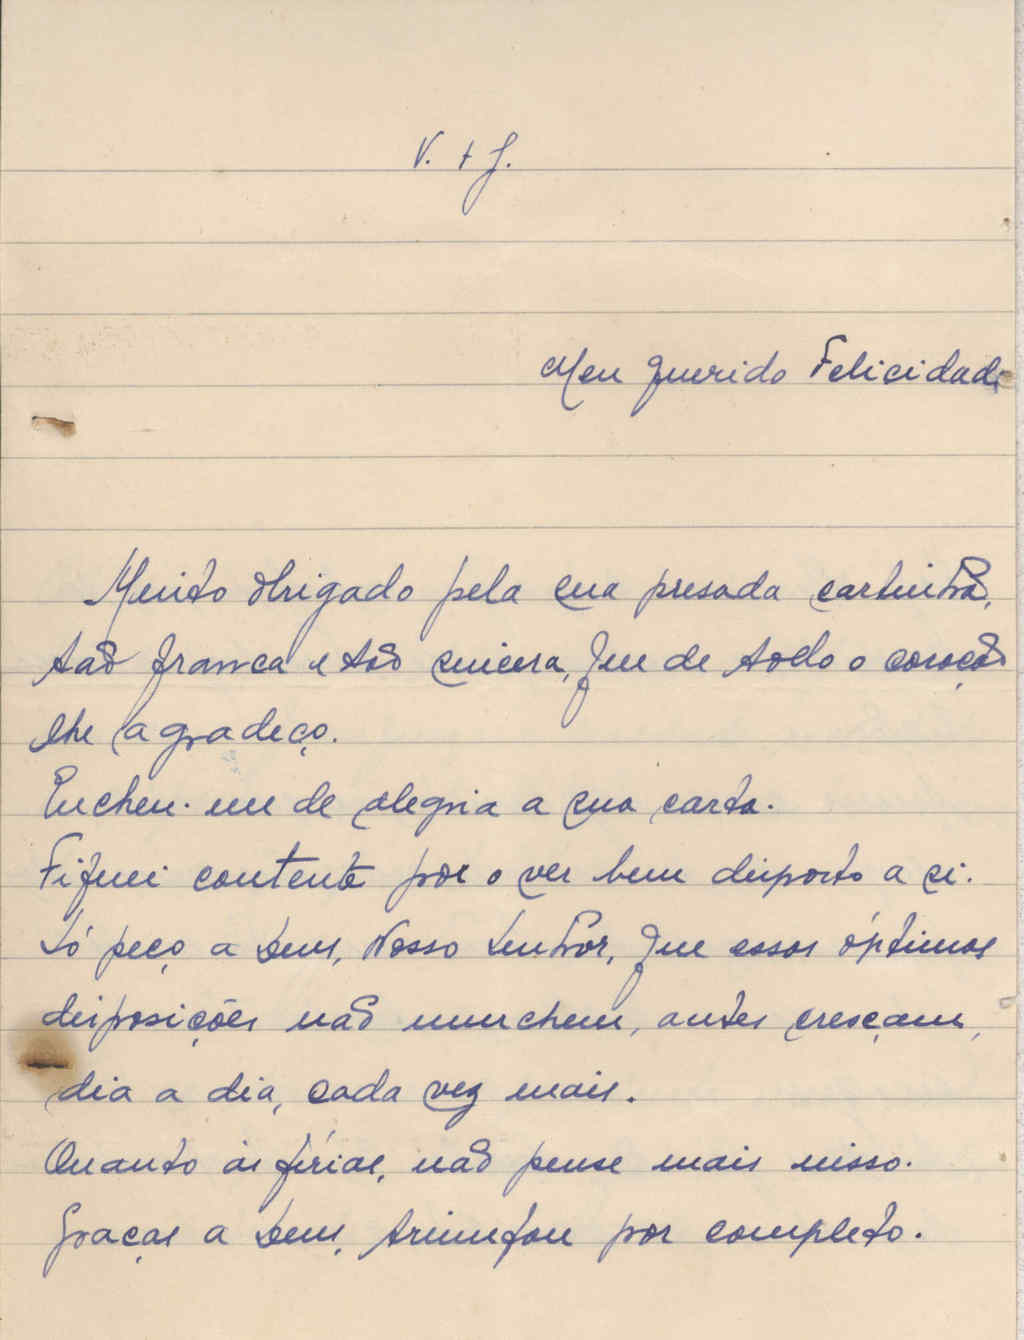 V. + J.
Meu querido Felicidade
Muito obrigado pela sua presada cartinha,
tão franca e tão sincera, que de todo o coração
lhe agradeço.
Encheu-me de alegria a sua carta.
Fiquei contente por o ver bem disposto a si.
Só peço a Deus, Nosso Senhor, que essas óptimas
disposições não murchem, antes cresçam,
dia a dia, cada vez mais.
Quanto às férias, não pense mais nisso.
Graças a Deus, triunfou por completo.